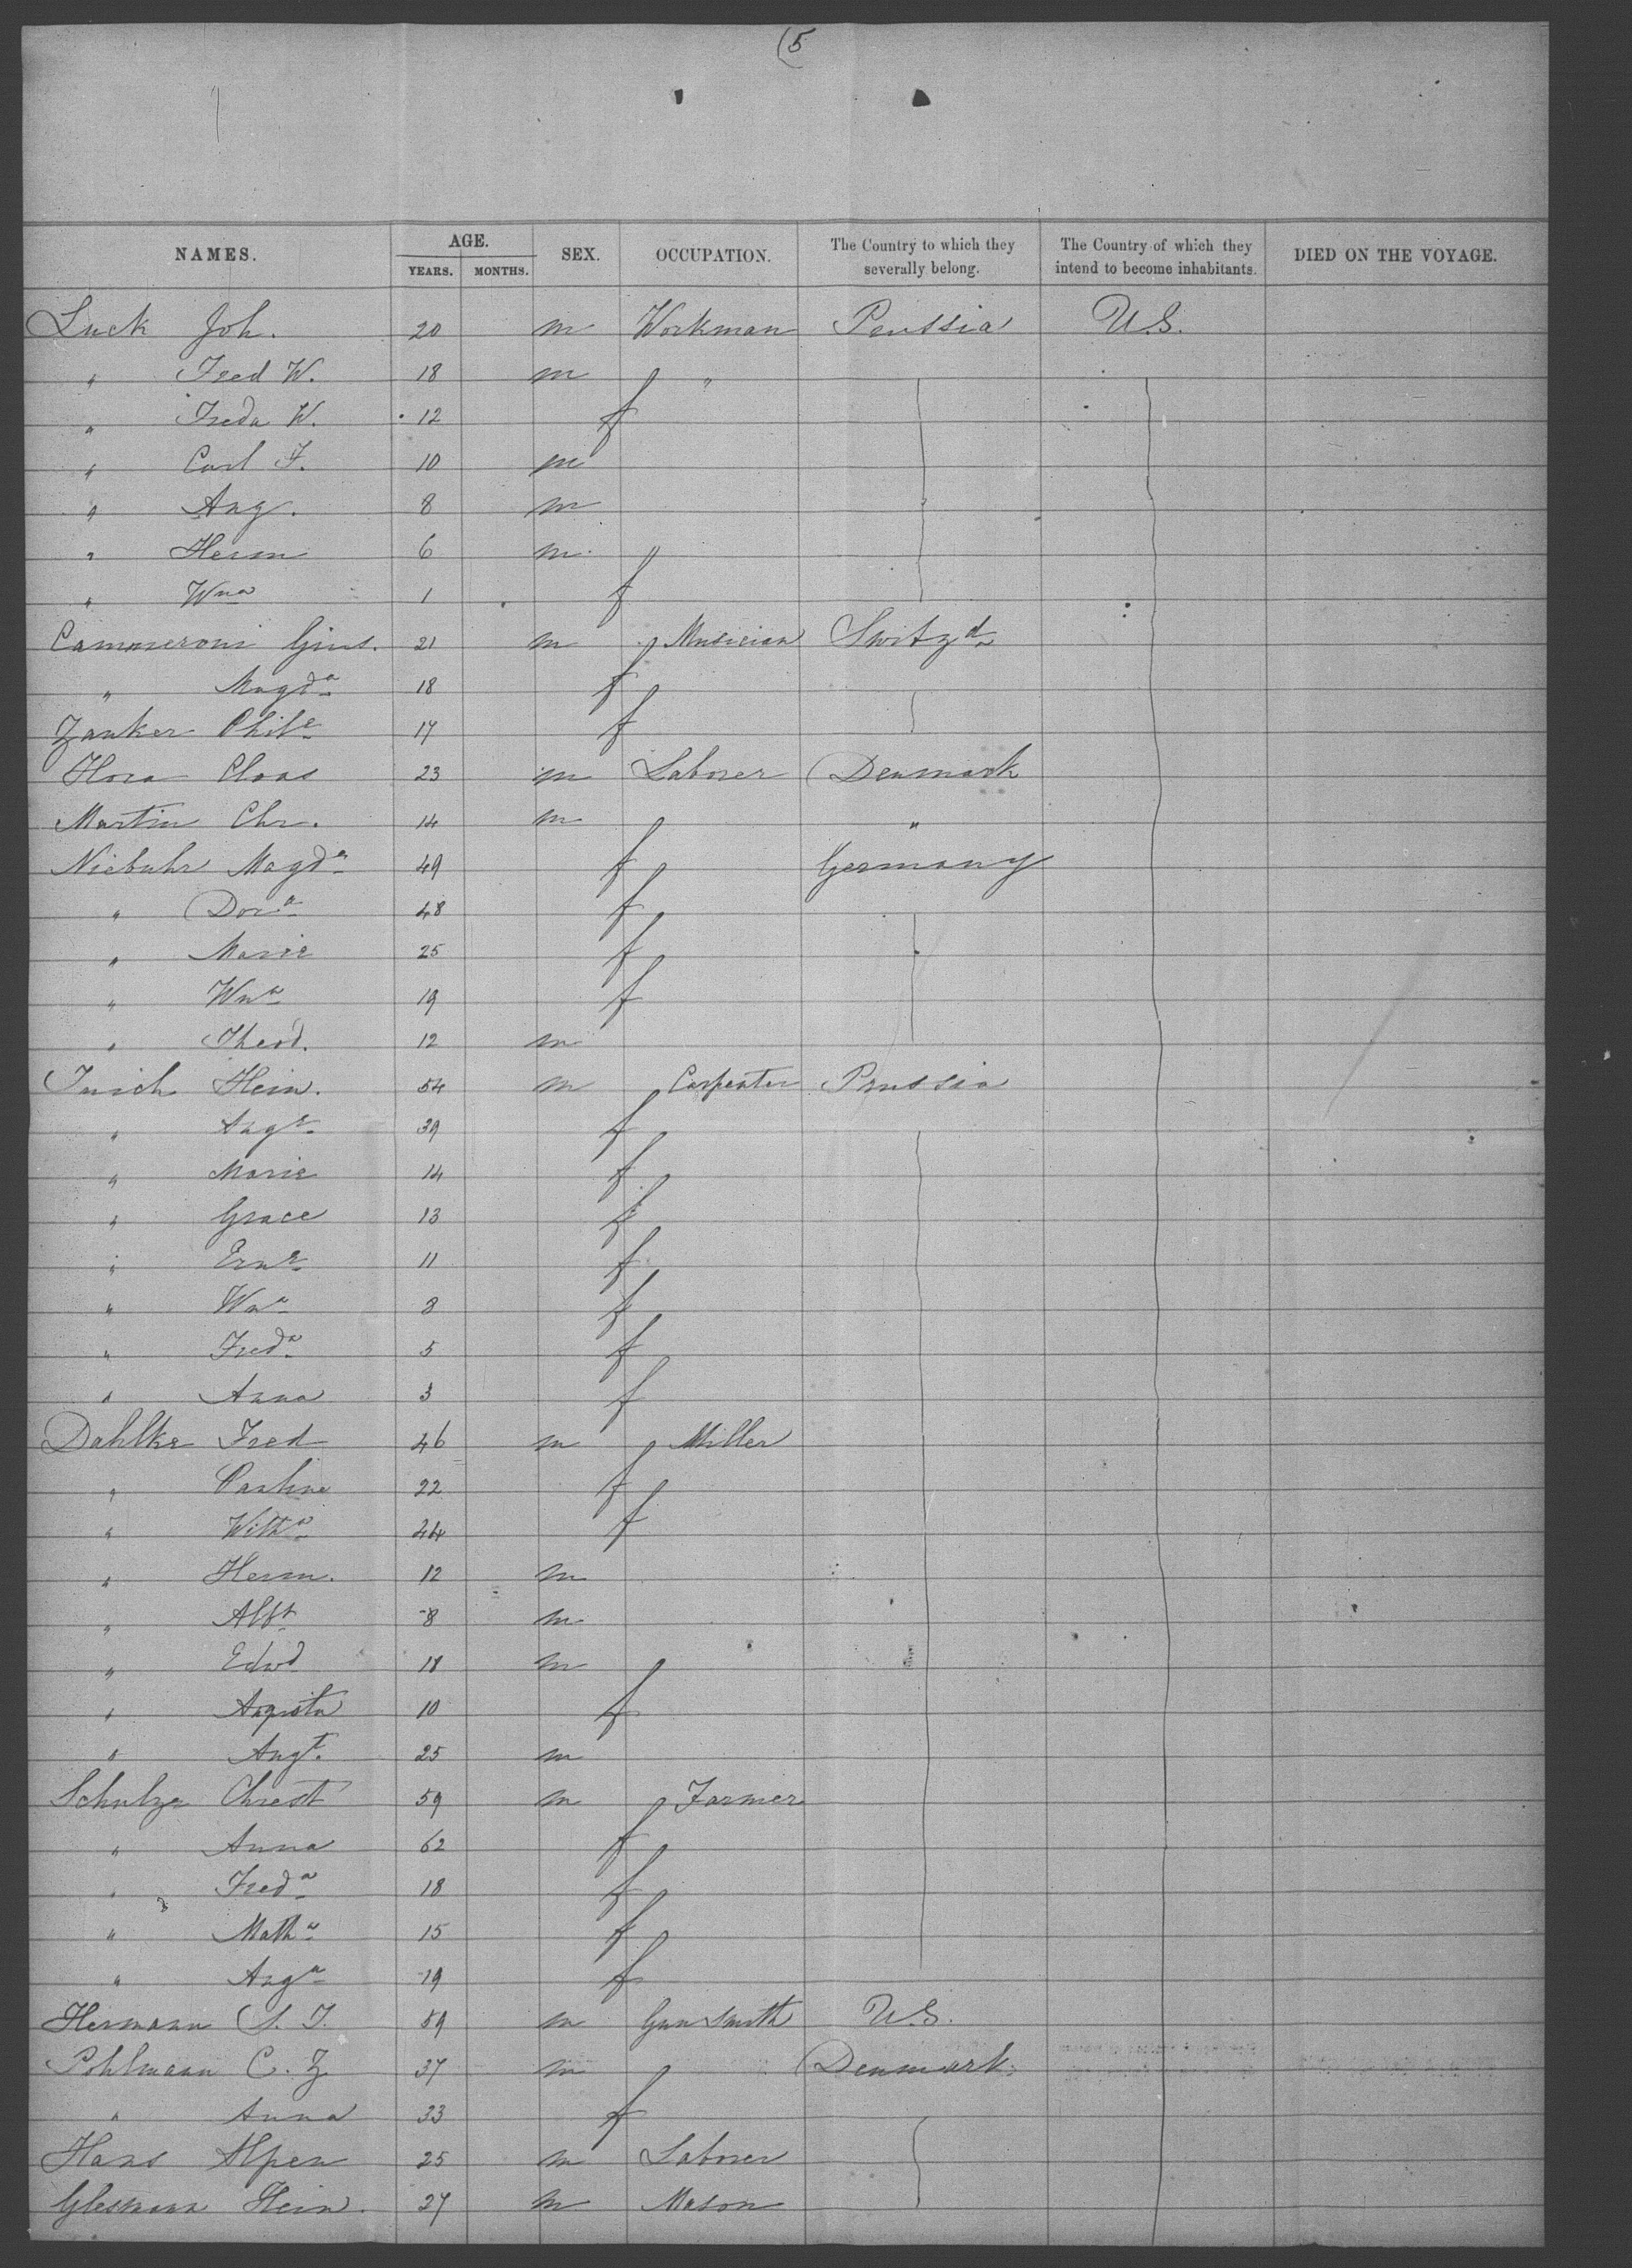 (5
NAMES. AGE. SEX. OCCUPATION. The Country to which they severally belong. The Country of which they intend to become inhabitants. DIED ON THE VOYAGE.
YEARS. MONTHS.
Luck Joh. 20 m Workman Prussia U.S.
" Fred W. 18 m "
" Freda W. 12 f
" Carl F. 10 m
" Aug. 8 m
" Herm 6 m
" Wna 1 f
Cammeroni Gius. 21 m Musician Switzd
" Magda 18 f
Zanker Phile 17 f
Hora Claas 23 m Laborer Denmark
Martin Chr. 14 m "
Niebuhr Magda 49 f Germany
" Dora 48 f
" Marie 25 f
" Wna 19 f
" Theod. 12 m
Juich Hein. 54 m Carpenter Prussia
" Auge 39 f
" Marie 14 f
" Grace 13 f
" Erne 11 f
" Wna 8 f
" Freda 5 f
" Anna 3 f
Dahlke Fred 46 m Miller
" Pauline 22 f
" Witha 44 f
" Herm. 12 m
" Albt 8 m
" Edwd 18 m
" Augusta 10 f
" Augt. 25 m
Schulze Chrest 59 m Farmer
" Anna 62 f
" Freda 18 f
" Matha 15 f
" Auga 19 f
Hermann S. J. 59 m Gun Smith U.S.
Pohlmann C. Z 37 m Denmark
" Anna 33 f
Hans Alpen 25 m Laborer
Glesmann Hein. 27 m Mason